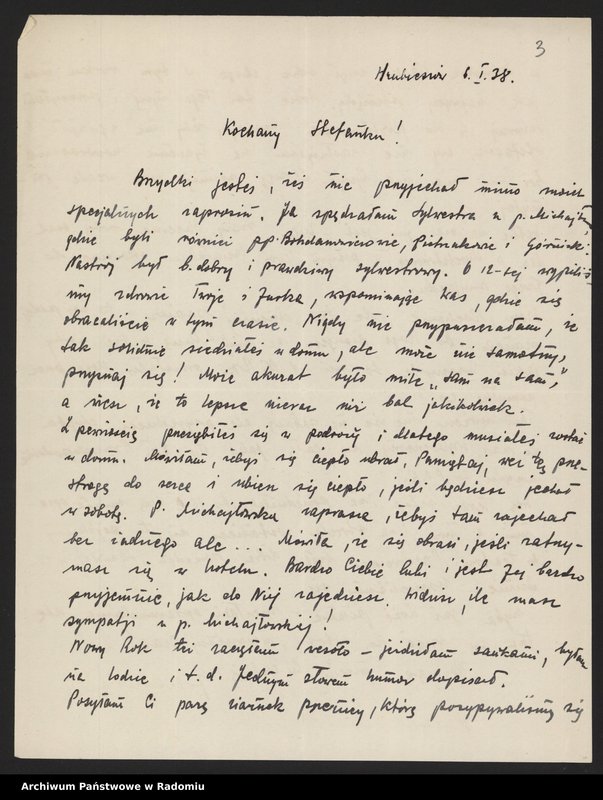 3
Hrubieszów 6.I.38.
Kochany Stefanku!
Brzydki jesteś, żeś nie przyjechał mimo moich
specjalnych zaprosin. Ja spędzałam Sylwestra u p. Michajł.
gdzie byli również pp. Bohdanowiczowie, Pietrzakowie i Górniak.
Nastrój był b. dobry i prawdziwy sylwestrowy. O 12-tej wypiliś-
my zdrowie Twoje i Jurka, wspominając Was, gdzie się
obracaliście w tym czasie. Nigdy nie przypuszczałam, że
tak solidnie siedziałeś w domu, ale może nie samotny,
przyznaj się! Może akurat było miłe „sam na sam,"
a wiesz, że to lepsze nieraz niż bal jakikolwiek.
Z pewnością przeziębiłeś się w podróży i dlatego musiałeś zostać
w domu. Mówiłam, żebyś się ciepło ubrał. Pamiętaj, weź tę prze-
strogę do serca i ubierz się ciepło, jeśli będziesz jechał
w sobotę. P. Michajłowska zaprasza, żebyś tam zajechał
bez żadnego ale ... Mówiła, że się obrazi, jeśli zatrzy-
masz się w hotelu. Bardzo Ciebie lubi i jest Jej bardzo
przyjemnie, jak do Niej zajedziesz. Widzisz, ile masz
sympatji u p. Michajłowskiej!
Nowy Rok też zaczęłam wesoło – jeździłam sankami, byłam
na lodzie i t. d. Jednym słowem humor dopisał.
Posyłam Ci parę ziarnek pszenicy, którą posypywaliśmy się
Archiwum Państwowe w Radomiu